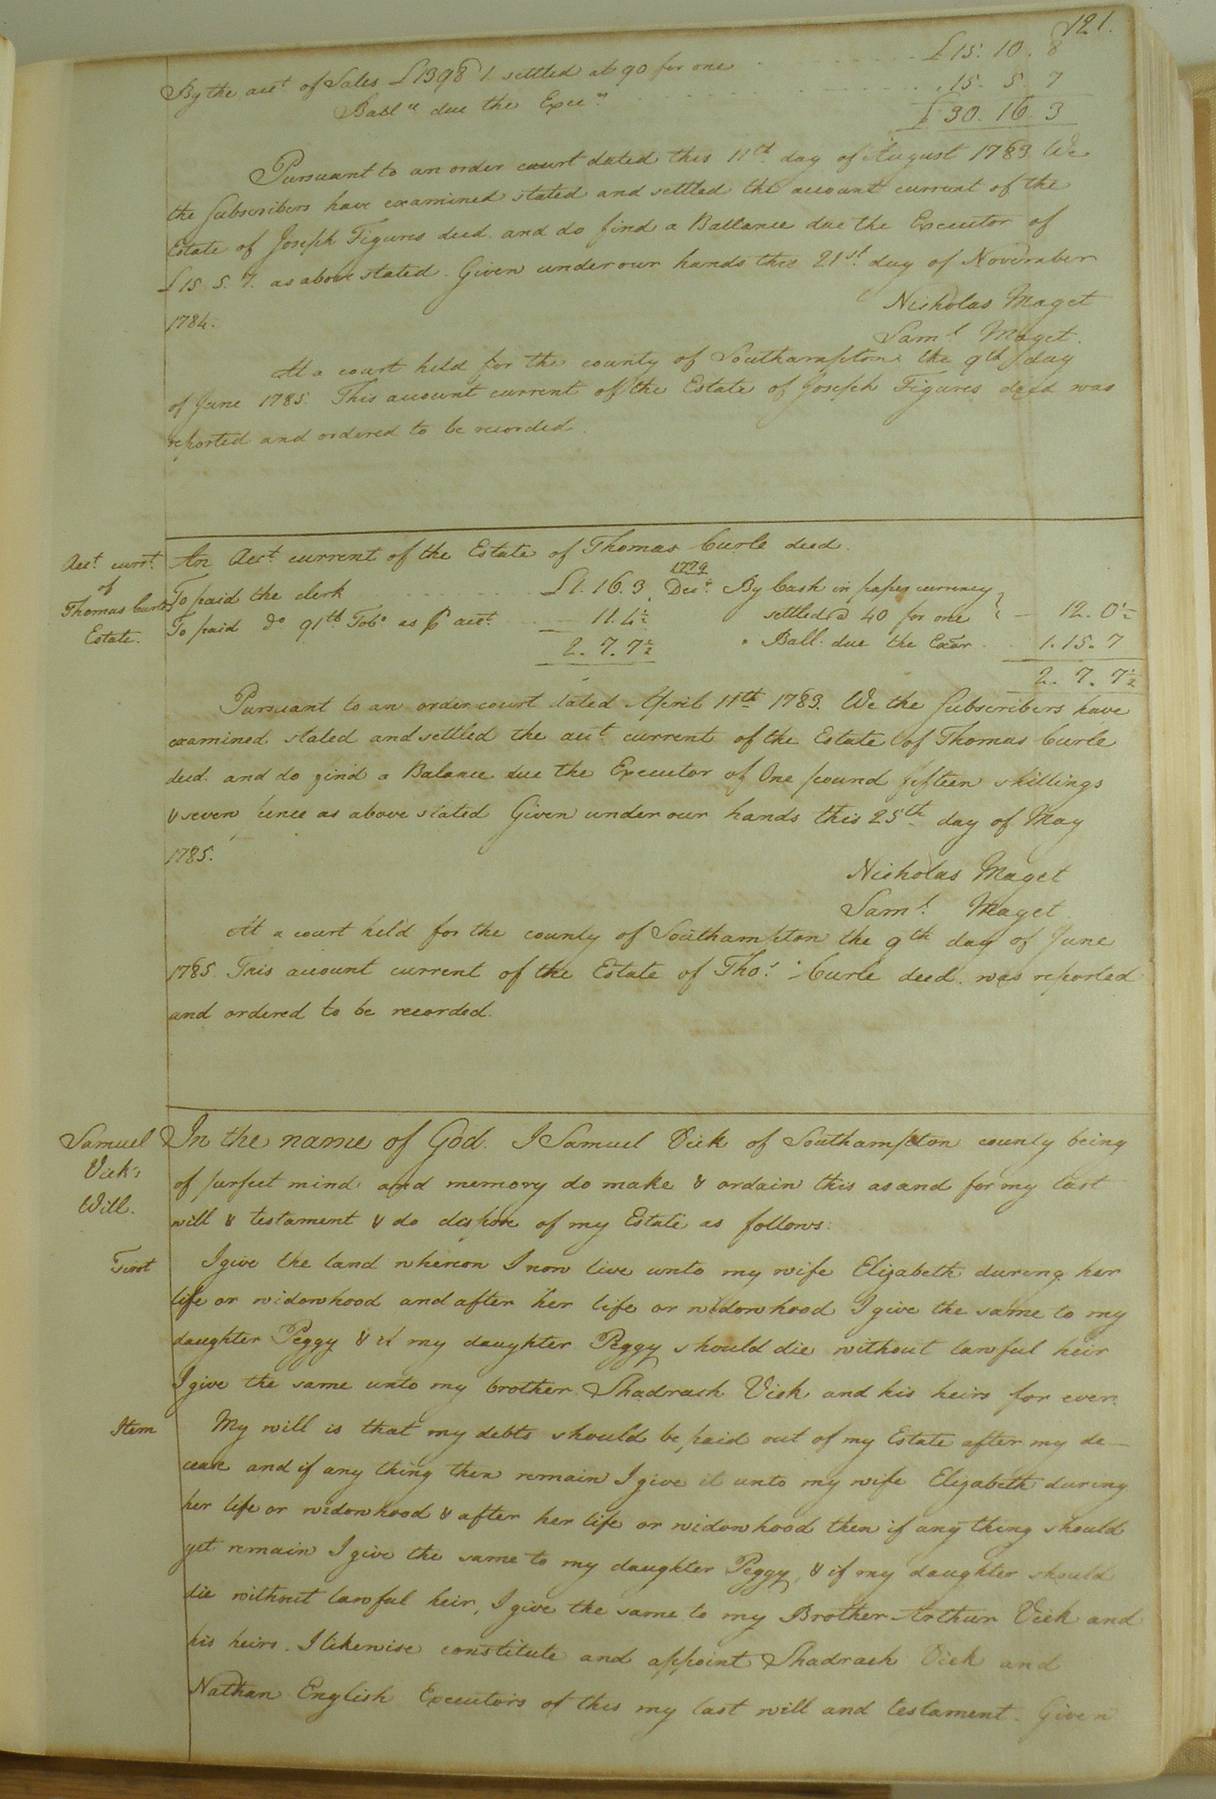 121.
By the acct. of Sales £1398.1. settled at 90 for one . . . . £15. 10. 8
Ballce due the Exec.r . . . . 15. 5. 7
£ 30. 16. 3
Pursuant to an order court dated this 11th day of August 1783 We
the Subscribers have examined stated and settled the account current of the
Estate of Joseph Figures decd. and do find a Ballance due the Executor of
£15. 5. 7. as above stated. Given under our hands this 21st day of November
1784.
Nicholas Maget
Saml. Maget.
At a court held for the county of Southampton the 9th day
of June 1785. This account current of the Estate of Joseph Figures decd was
reported and ordered to be recorded.
Acct. currt.
of
Thomas Curle
Estate.
An Acct. current of the Estate of Thomas Curle decd.
1779
To paid the clerk . . . . £1. 16. 3 Decr. By Cash in paper currency
To paid do. 91th Tobo. as ⅌ acct. . . 11. 4½ settled @ 40 for one — 12. 0½
2. 7. 7½ " Ball. due the Exōr . . 1. 15. 7
2. 7. 7½
Pursuant to an order court dated April 11th 1783. We the Subscribers have
examined stated and settled the acct. current of the Estate of Thomas Curle
decd. and do find a Balance due the Executor of One pound fifteen shillings
& seven pence as above stated Given under our hands this 25th day of May
1785.
Nicholas Maget
Saml. Maget
At a court held for the county of Southampton the 9th day of June
1785. This account current of the Estate of Thos. Curle decd. was reported
and ordered to be recorded.
Samuel
Vick's
Will.
In the name of God. I Samuel Vick of Southampton county being
of perfect mind and memory do make & ordain this as and for my last
will & testament & do dispose of my Estate as follows:
First I give the land whereon I now live unto my wife Elizabeth during her
life or widowhood and after her life or widowhood I give the same to my
daughter Peggy & if my daughter Peggy should die without lawful heir
I give the same unto my brother Shadrach Vick and his heirs for ever.
Item My will is that my debts should be paid out of my Estate after my de—
cease and if any thing then remain I give it unto my wife Elizabeth during
her life or widowhood & after her life or widowhood then if any thing should
yet remain I give the same to my daughter Peggy, & if my daughter should
die without lawful heir, I give the same to my Brother Arthur Vick and
his heirs. I likewise constitute and appoint Shadrach Vick and
Nathan English Executors of this my last will and testament. Given